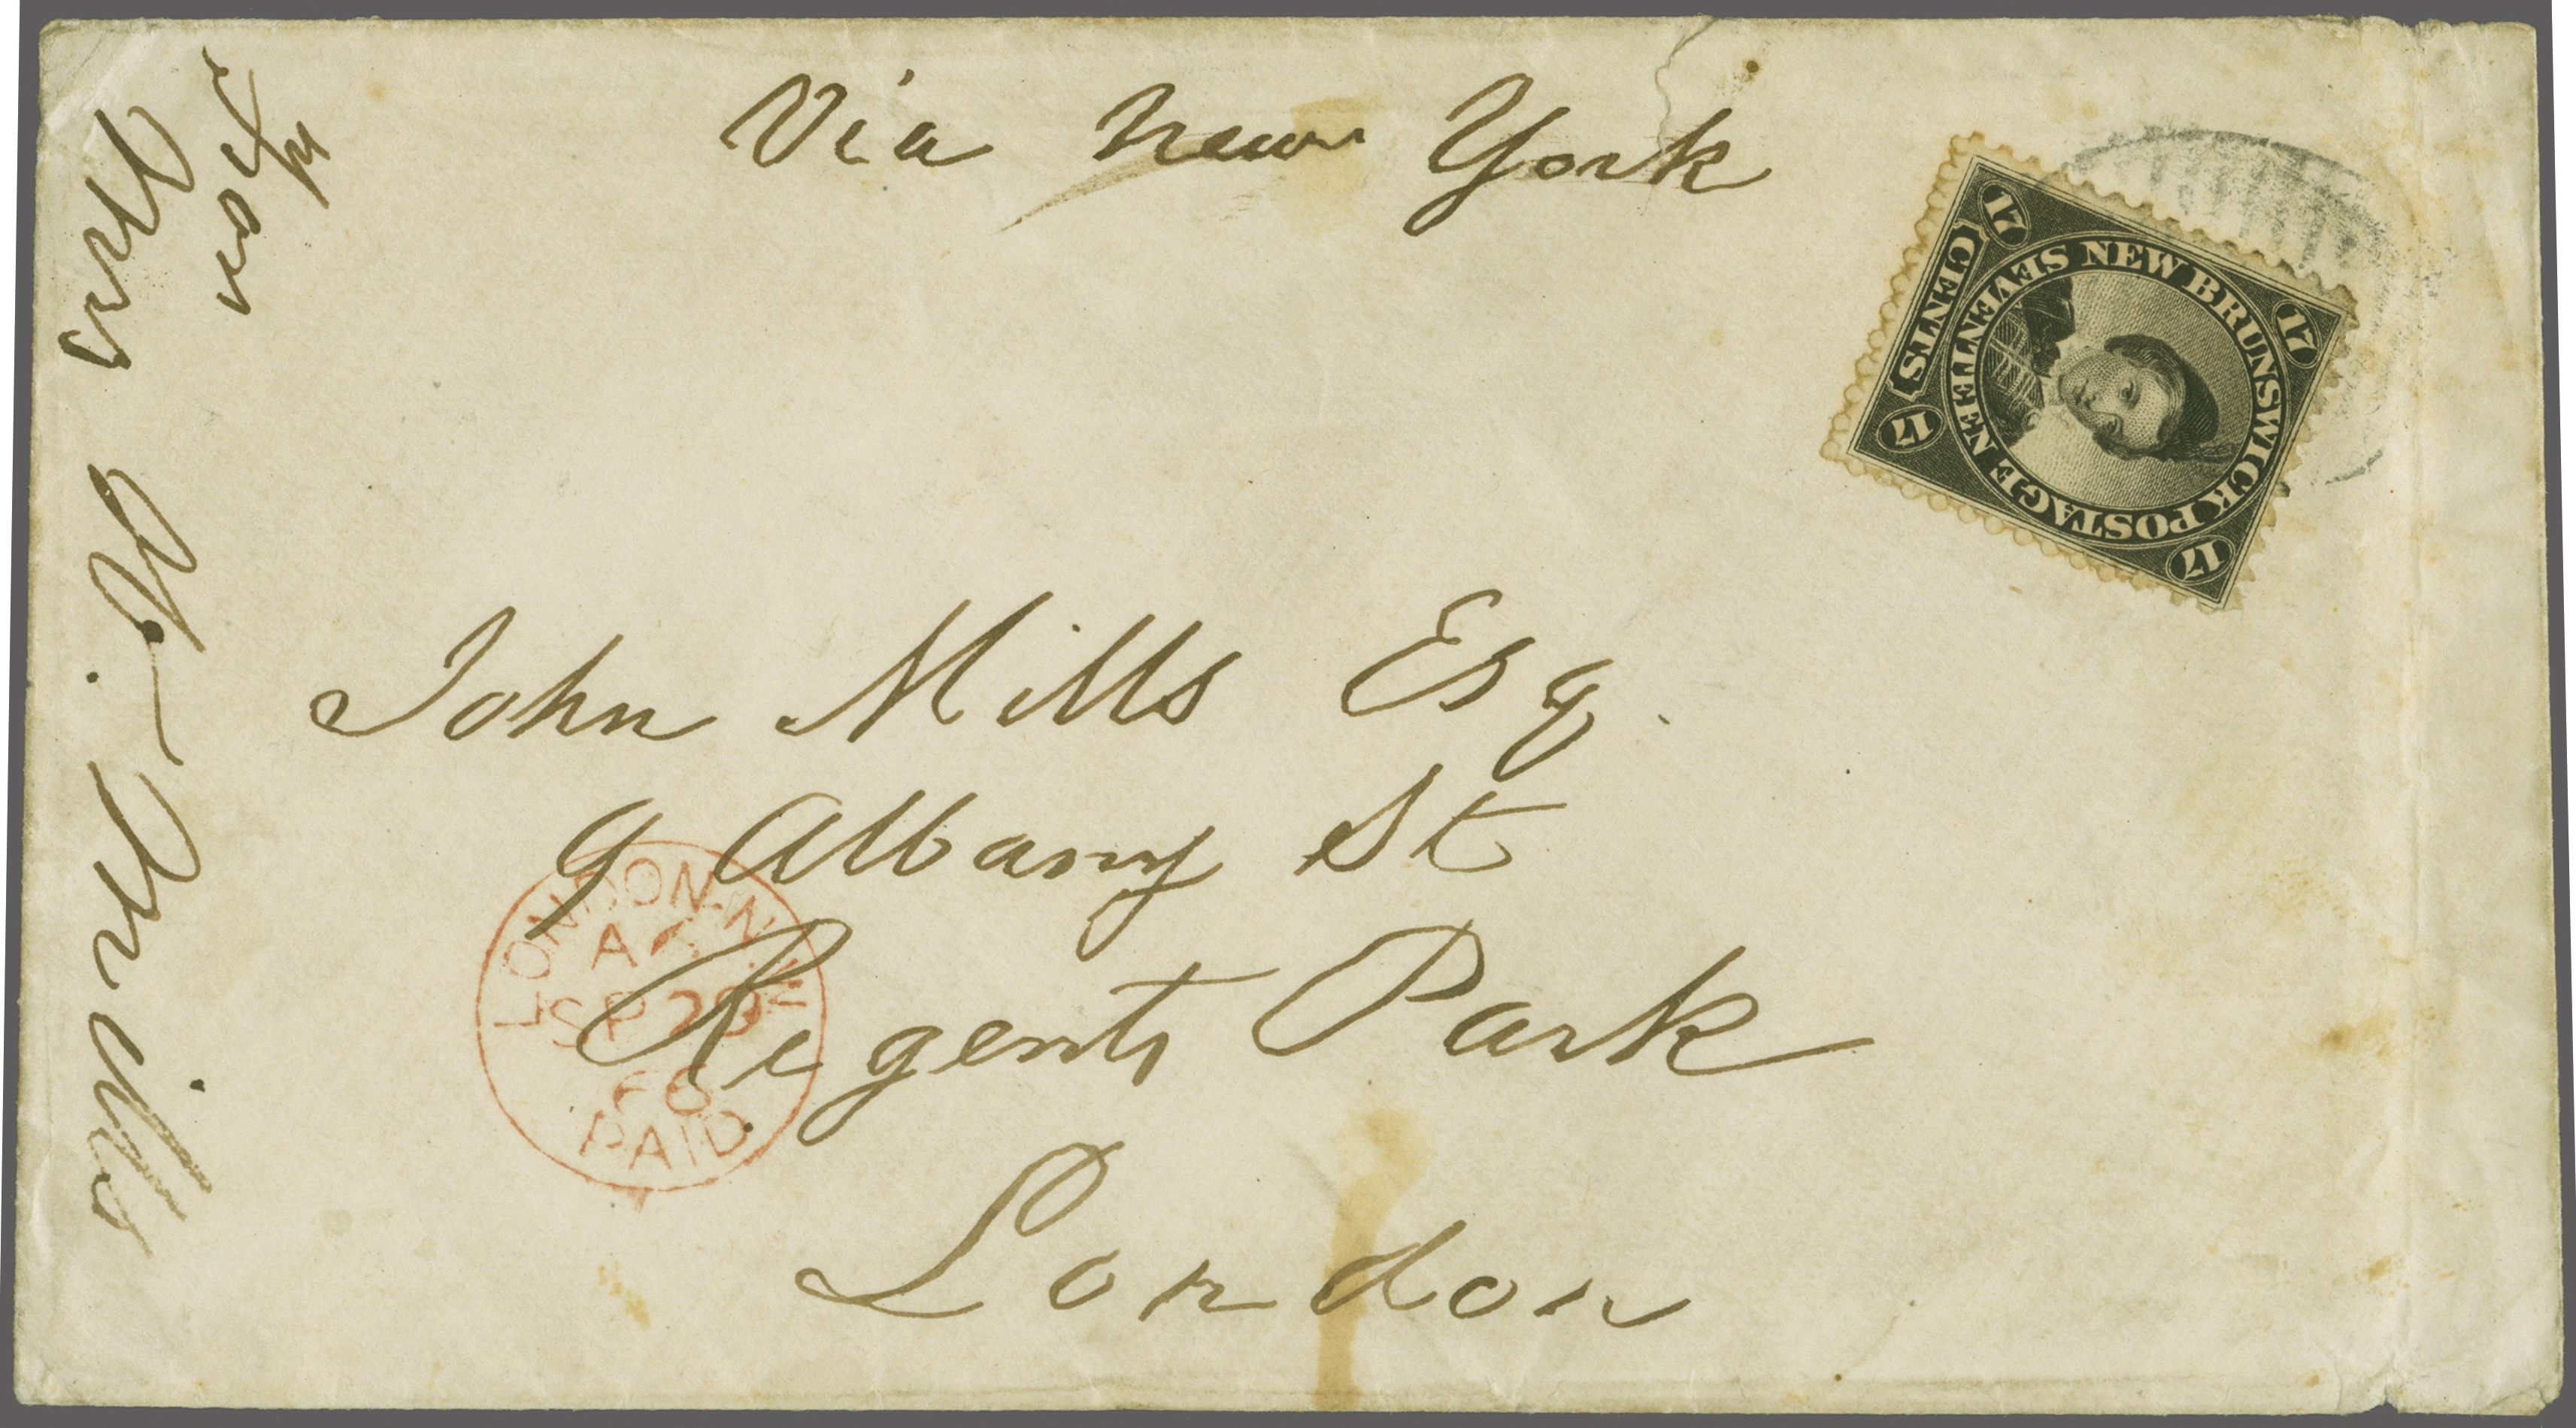 Via New York
from
Mrs W. Mills
17 17 17 17
CENTS
NEW BRUNSWICK POSTAGE
SEVENTEEN
John Mills Esq.
9 Albany St
Regents Park
London
LONDON-N.W
SP 29
PAID